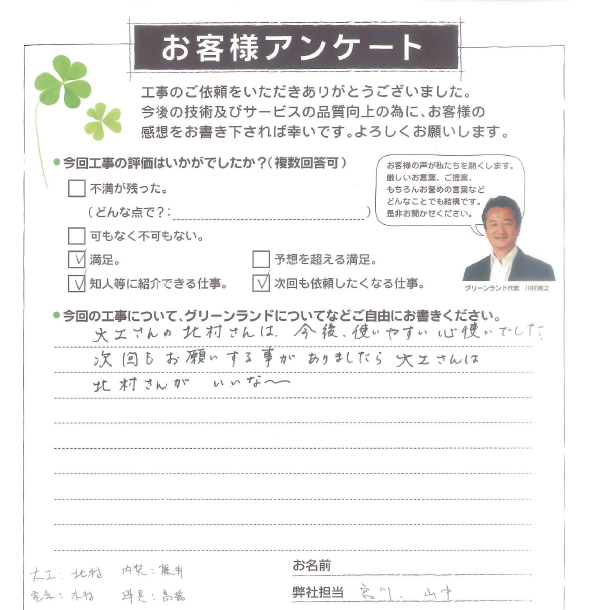 お客様アンケート
工事のご依頼をいただきありがとうございました。
今後の技術及びサービスの品質向上の為に、お客様の
感想をお書き下されば幸いです。よろしくお願いします。
今回工事の評価はいかがでしたか？（複数回答可）
不満が残った。
（どんな点で？： ）
可もなく不可もない。
満足。
予想を超える満足。
知人等に紹介できる仕事。
次回も依頼したくなる仕事。
お客様の声が私たちを熱くします。
厳しいお言葉、ご提案、
もちろんお誉めの言葉など
どんなことでも結構です。
是非お聞かせください。
グリーンランド代表 川村英之
今回の工事について、グリーンランドについてなどご自由にお書きください。
大工さんの北村さんは、今後、使いやすい心使いでした
次回もお願いする事がありましたら大工さんは
北村さんが いいな〜
お名前
弊社担当 宮川、山中
大工：北村 内装：藤井
電気：木村 建具：高橋